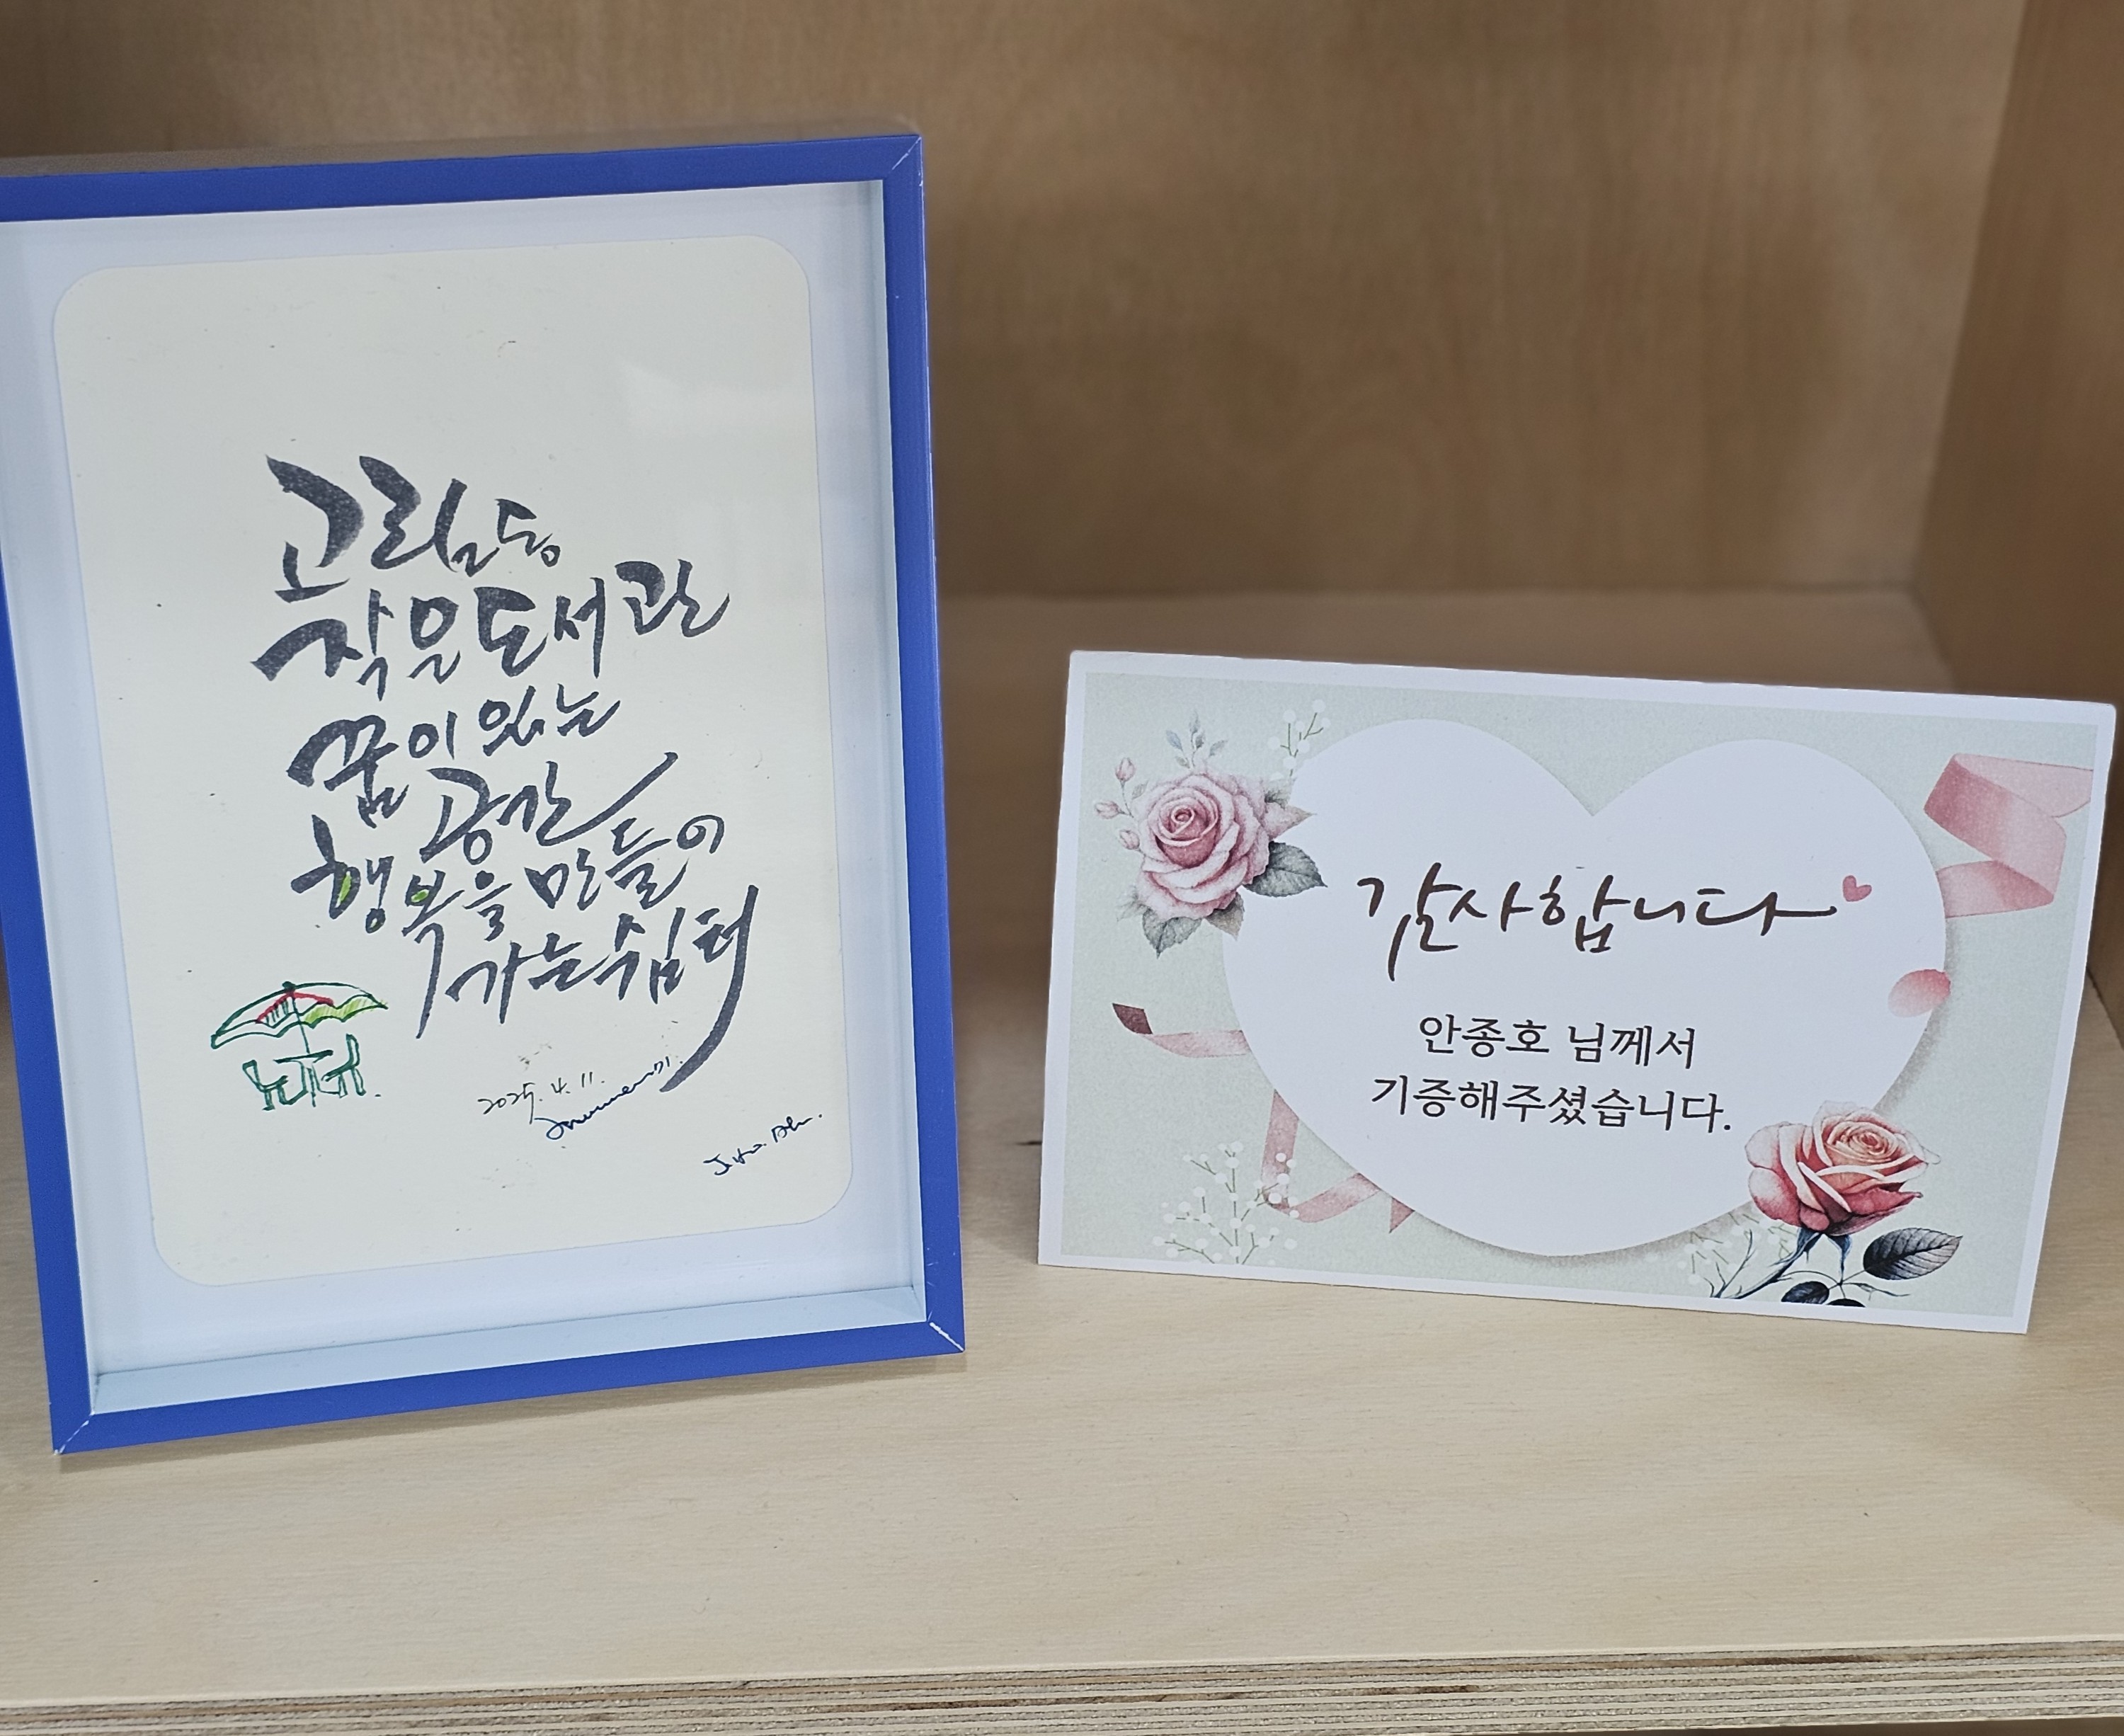 고림동
작은도서관
꿈이 있는
공간
행복을 만들어
가는 쉼터
2025. 4. 11.
감사합니다
안종호 님께서
기증해주셨습니다.